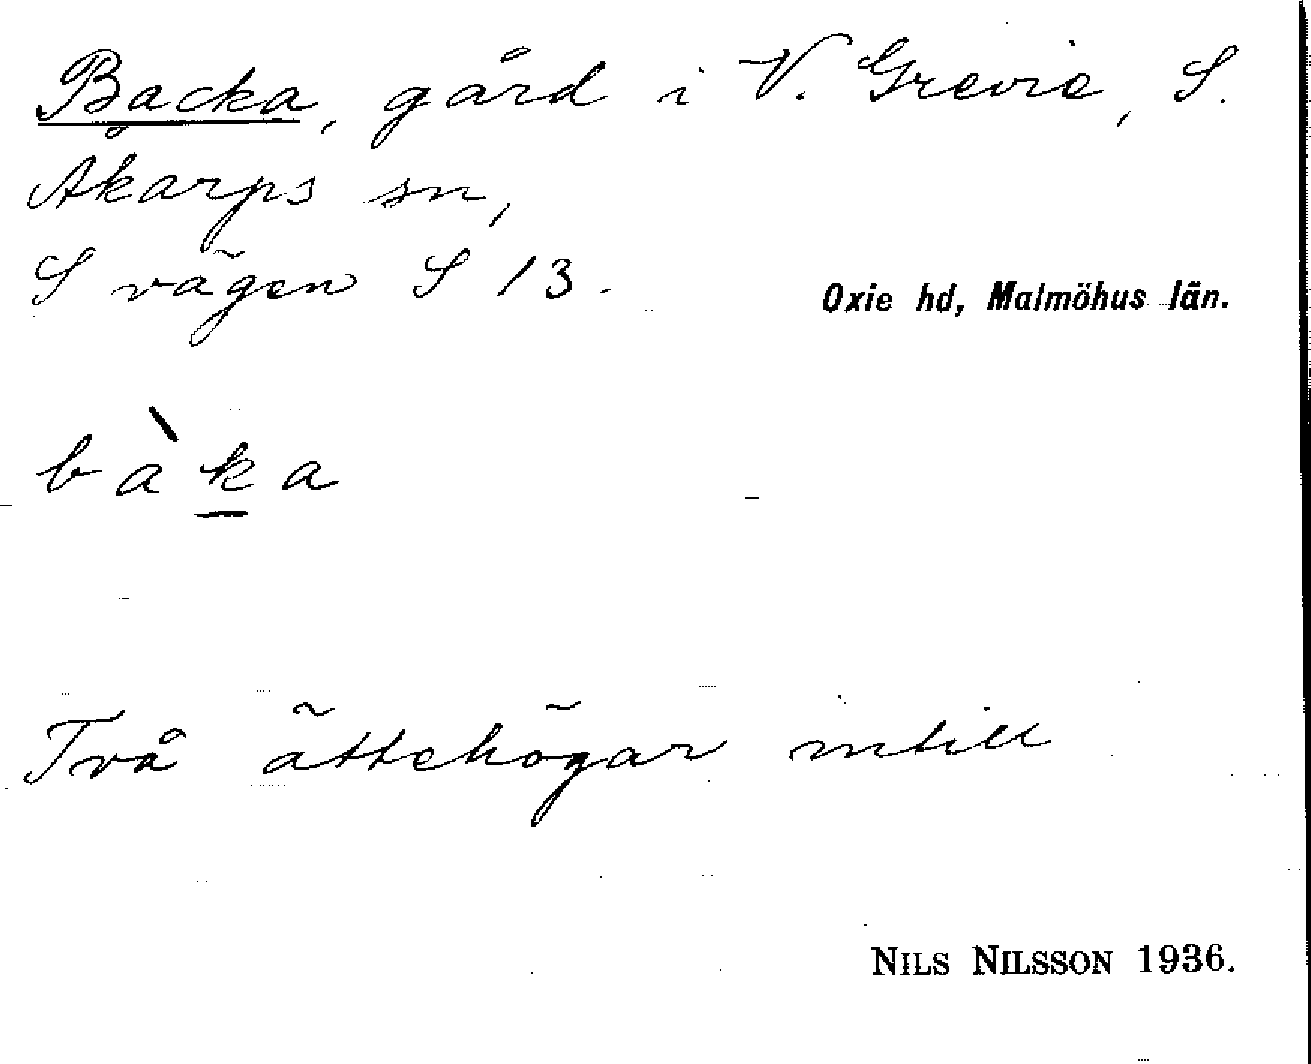 Backa, gård i V. Grevie, S.
Åkarps sn,
S vägen S 13.
Oxie hd, Malmöhus län.
bàka
Två ättehögar intill
NILS NILSSON 1936.